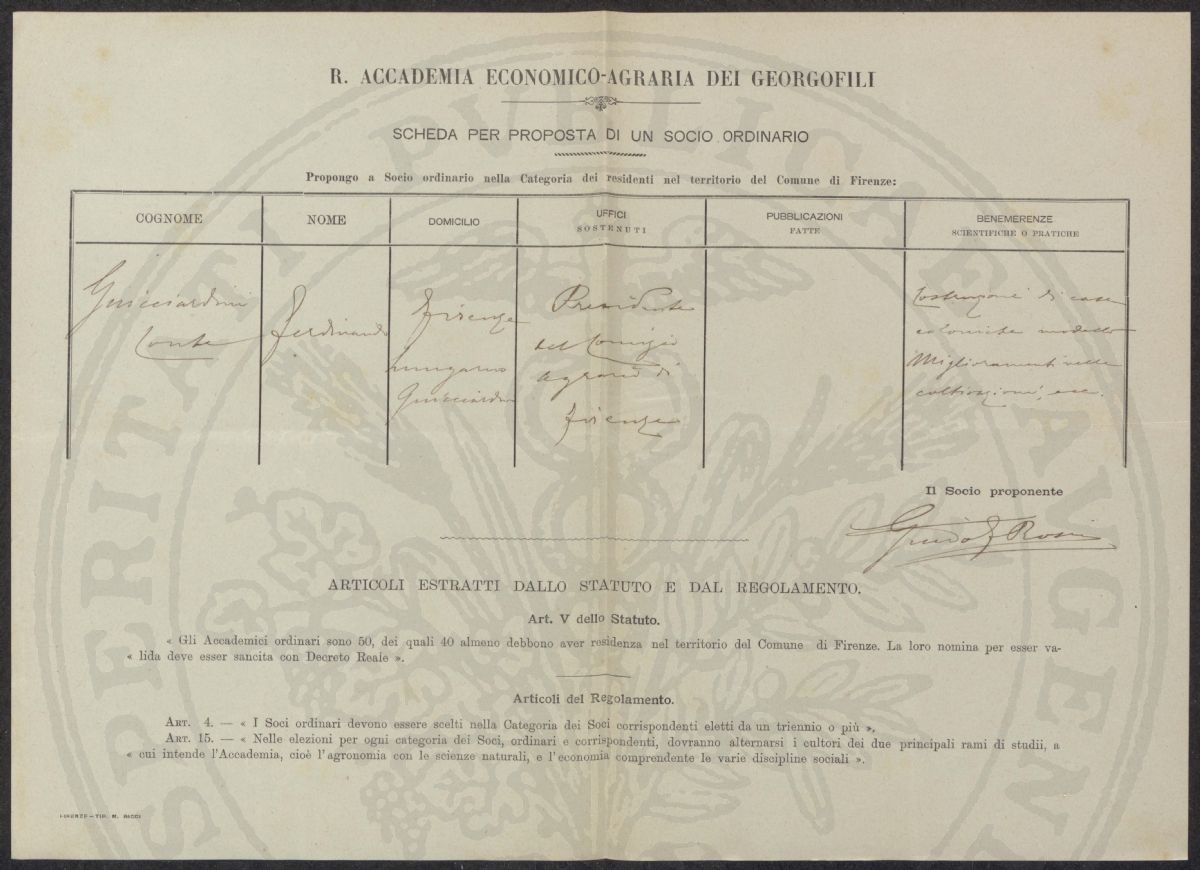 R. ACCADEMIA ECONOMICO-AGRARIA DEI GEORGOFILI
SCHEDA PER PROPOSTA DI UN SOCIO ORDINARIO
Propongo a Socio ordinario nella Categoria dei residenti nel territorio del Comune di Firenze:
COGNOME
NOME
DOMICILIO
UFFICI
SOSTENUTI
PUBBLICAZIONI
FATTE
BENEMERENZE
SCIENTIFICHE O PRATICHE
Guicciardini
Conte
Ferdinando
Firenze
Lungarno
Guicciardini
Presidente
del Comizio
Agrario di
Firenze
Costruzione di case
coloniche modello
Miglioramenti nelle
coltivazioni, ecc.
Il Socio proponente
Guido
ARTICOLI ESTRATTI DALLO STATUTO E DAL REGOLAMENTO.
Art. V dello Statuto.
« Gli Accademici ordinari sono 50, dei quali 40 almeno debbono aver residenza nel territorio del Comune di Firenze. La loro nomina per esser va-
« lida deve esser sancita con Decreto Reale ».
Articoli del Regolamento.
ART. 4. — « I Soci ordinari devono essere scelti nella Categoria dei Soci corrispondenti eletti da un triennio o più ».
ART. 15. — « Nelle elezioni per ogni categoria dei Soci, ordinari e corrispondenti, dovranno alternarsi i cultori dei due principali rami di studii, a
« cui intende l'Accademia, cioè l'agronomia con le scienze naturali, e l'economia comprendente le varie discipline sociali ».
FIRENZE - TIP. M. RICCI